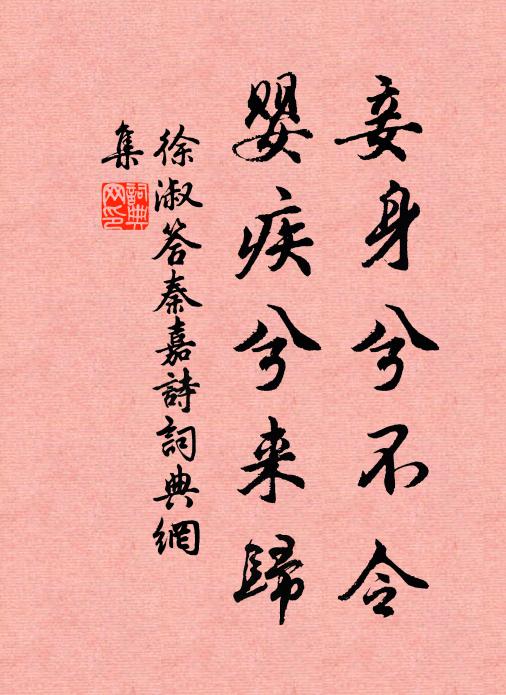 妾身兮不令
嬰疾兮来歸
徐淑答秦嘉詩詞典網
集
詞典网印